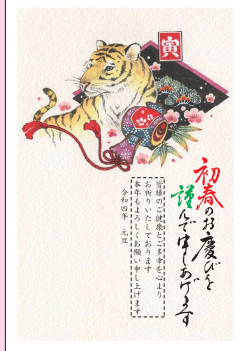 寅
初春のお慶びを
謹んで申しあげます
皆様のご健康とご多幸を心より
お祈りいたしております
本年もよろしくお願い申し上げます
令和四年 元旦